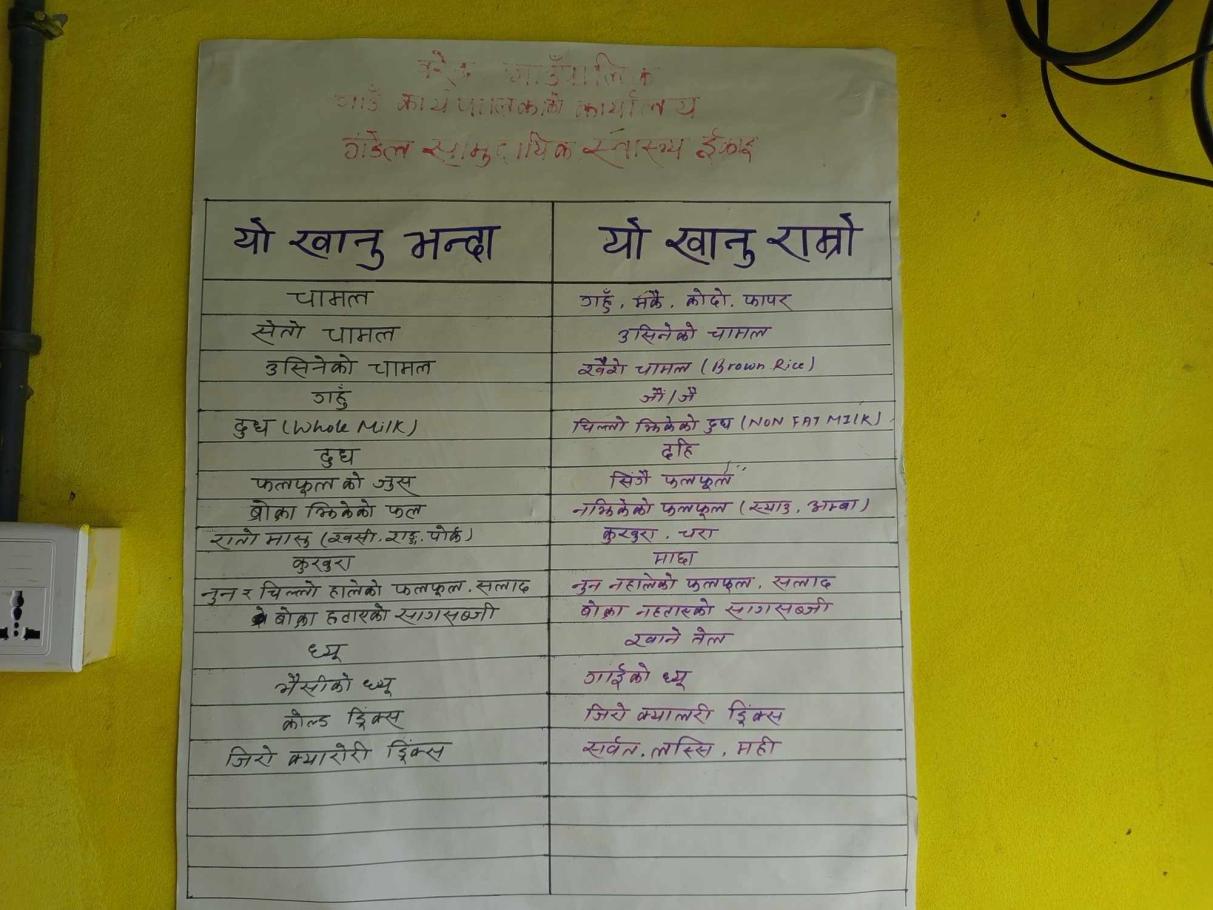 गाउँपालिका
गाउँ कार्यपालिकाको कार्यालय
गंडेल सामुदायिक स्वास्थ्य ईकाइ
यो खानु भन्दा यो खानु राम्रो
चामल गहुँ, मकै, कोदो, फापर
सेतो चामल उसिनेको चामल
उसिनेको चामल खैरो चामल (Brown Rice)
गहुँ जौं/जै
दुध (Whole Milk) चिल्लो झिकेको दुध (NON FAT MILK)
दुध दहि
फलफूलको जुस सिंगै फलफूल
बोक्रा झिकेको फल नझिकेको फलफूल (स्याउ, अम्बा)
रातो मासु (खसी, राङ्गा, पोर्क) कुखुरा, चरा
कुखुरा माछा
नुन र चिल्लो हालेको फलफूल, सलाद नुन नहालेको फलफूल, सलाद
बोक्रा हटाएको सागसब्जी बोक्रा नहटाएको सागसब्जी
घ्यू खाने तेल
भैसीको घ्यू गाईको घ्यू
कोल्ड ड्रिंक्स जिरो क्यालरी ड्रिंक्स
जिरो क्यारोरी ड्रिंक्स सर्वत, लस्सि, मही